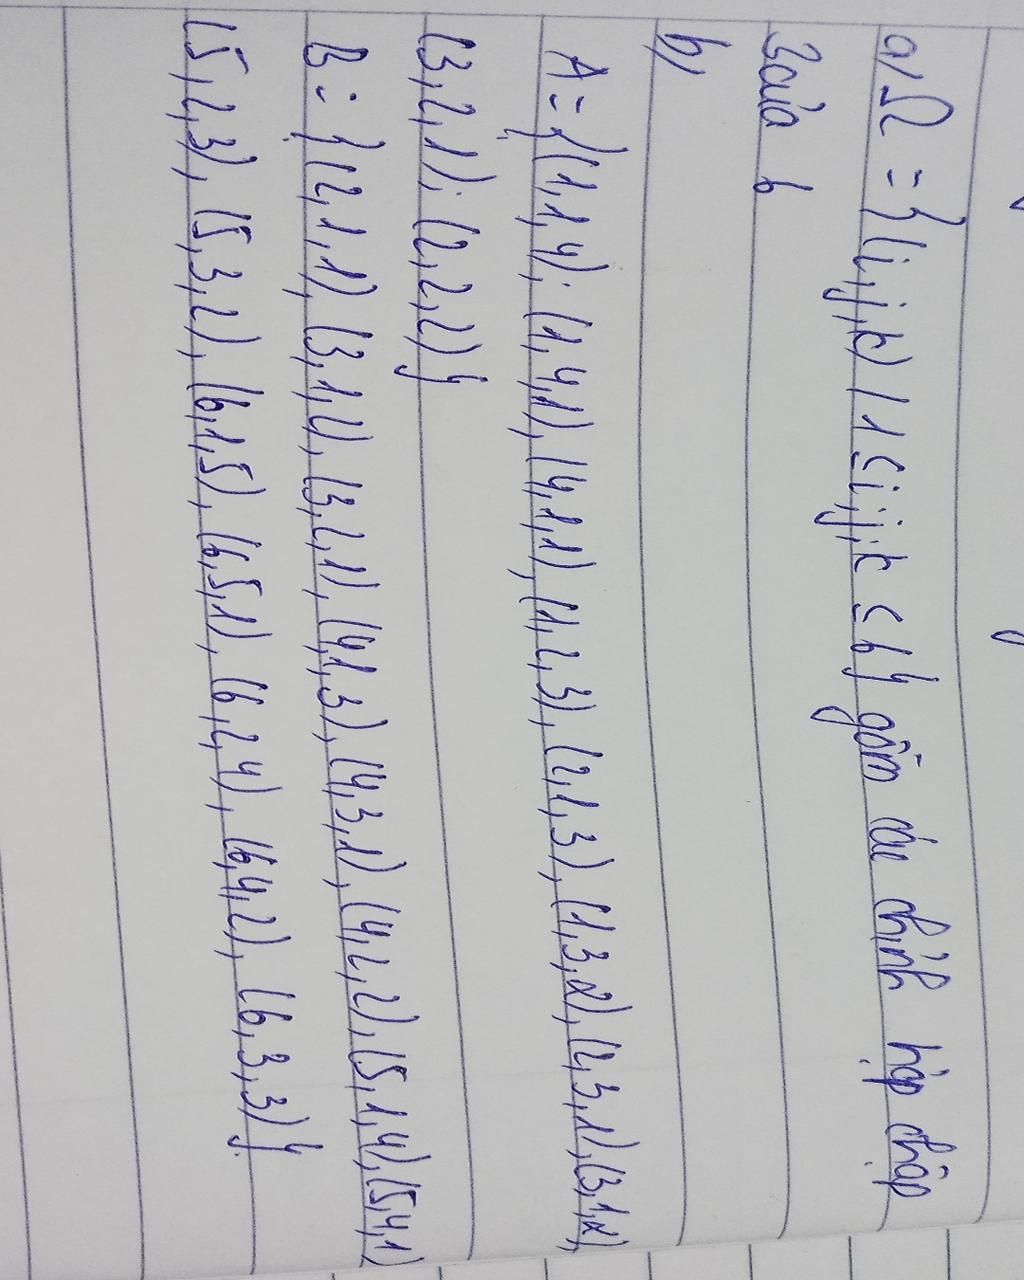 a, Ω = {(i,j,k) / 1 ≤ i,j,k ≤ 6} gồm các chỉnh hợp chập
3 của 6
b,
A = {(1,1,4); (1,4,1), (4,1,1), (1,2,3), (2,1,3), (1,3,2), (2,3,1), (3,1,2),
(3,2,1); (2,2,2)}
B = {(2,1,1), (3,1,2), (3,2,1), (4,1,3), (4,3,1), (4,2,2), (5,1,4), (5,4,1)
(5,2,3), (5,3,2), (6,1,5), (6,5,1), (6,2,4), (6,4,2), (6,3,3)}